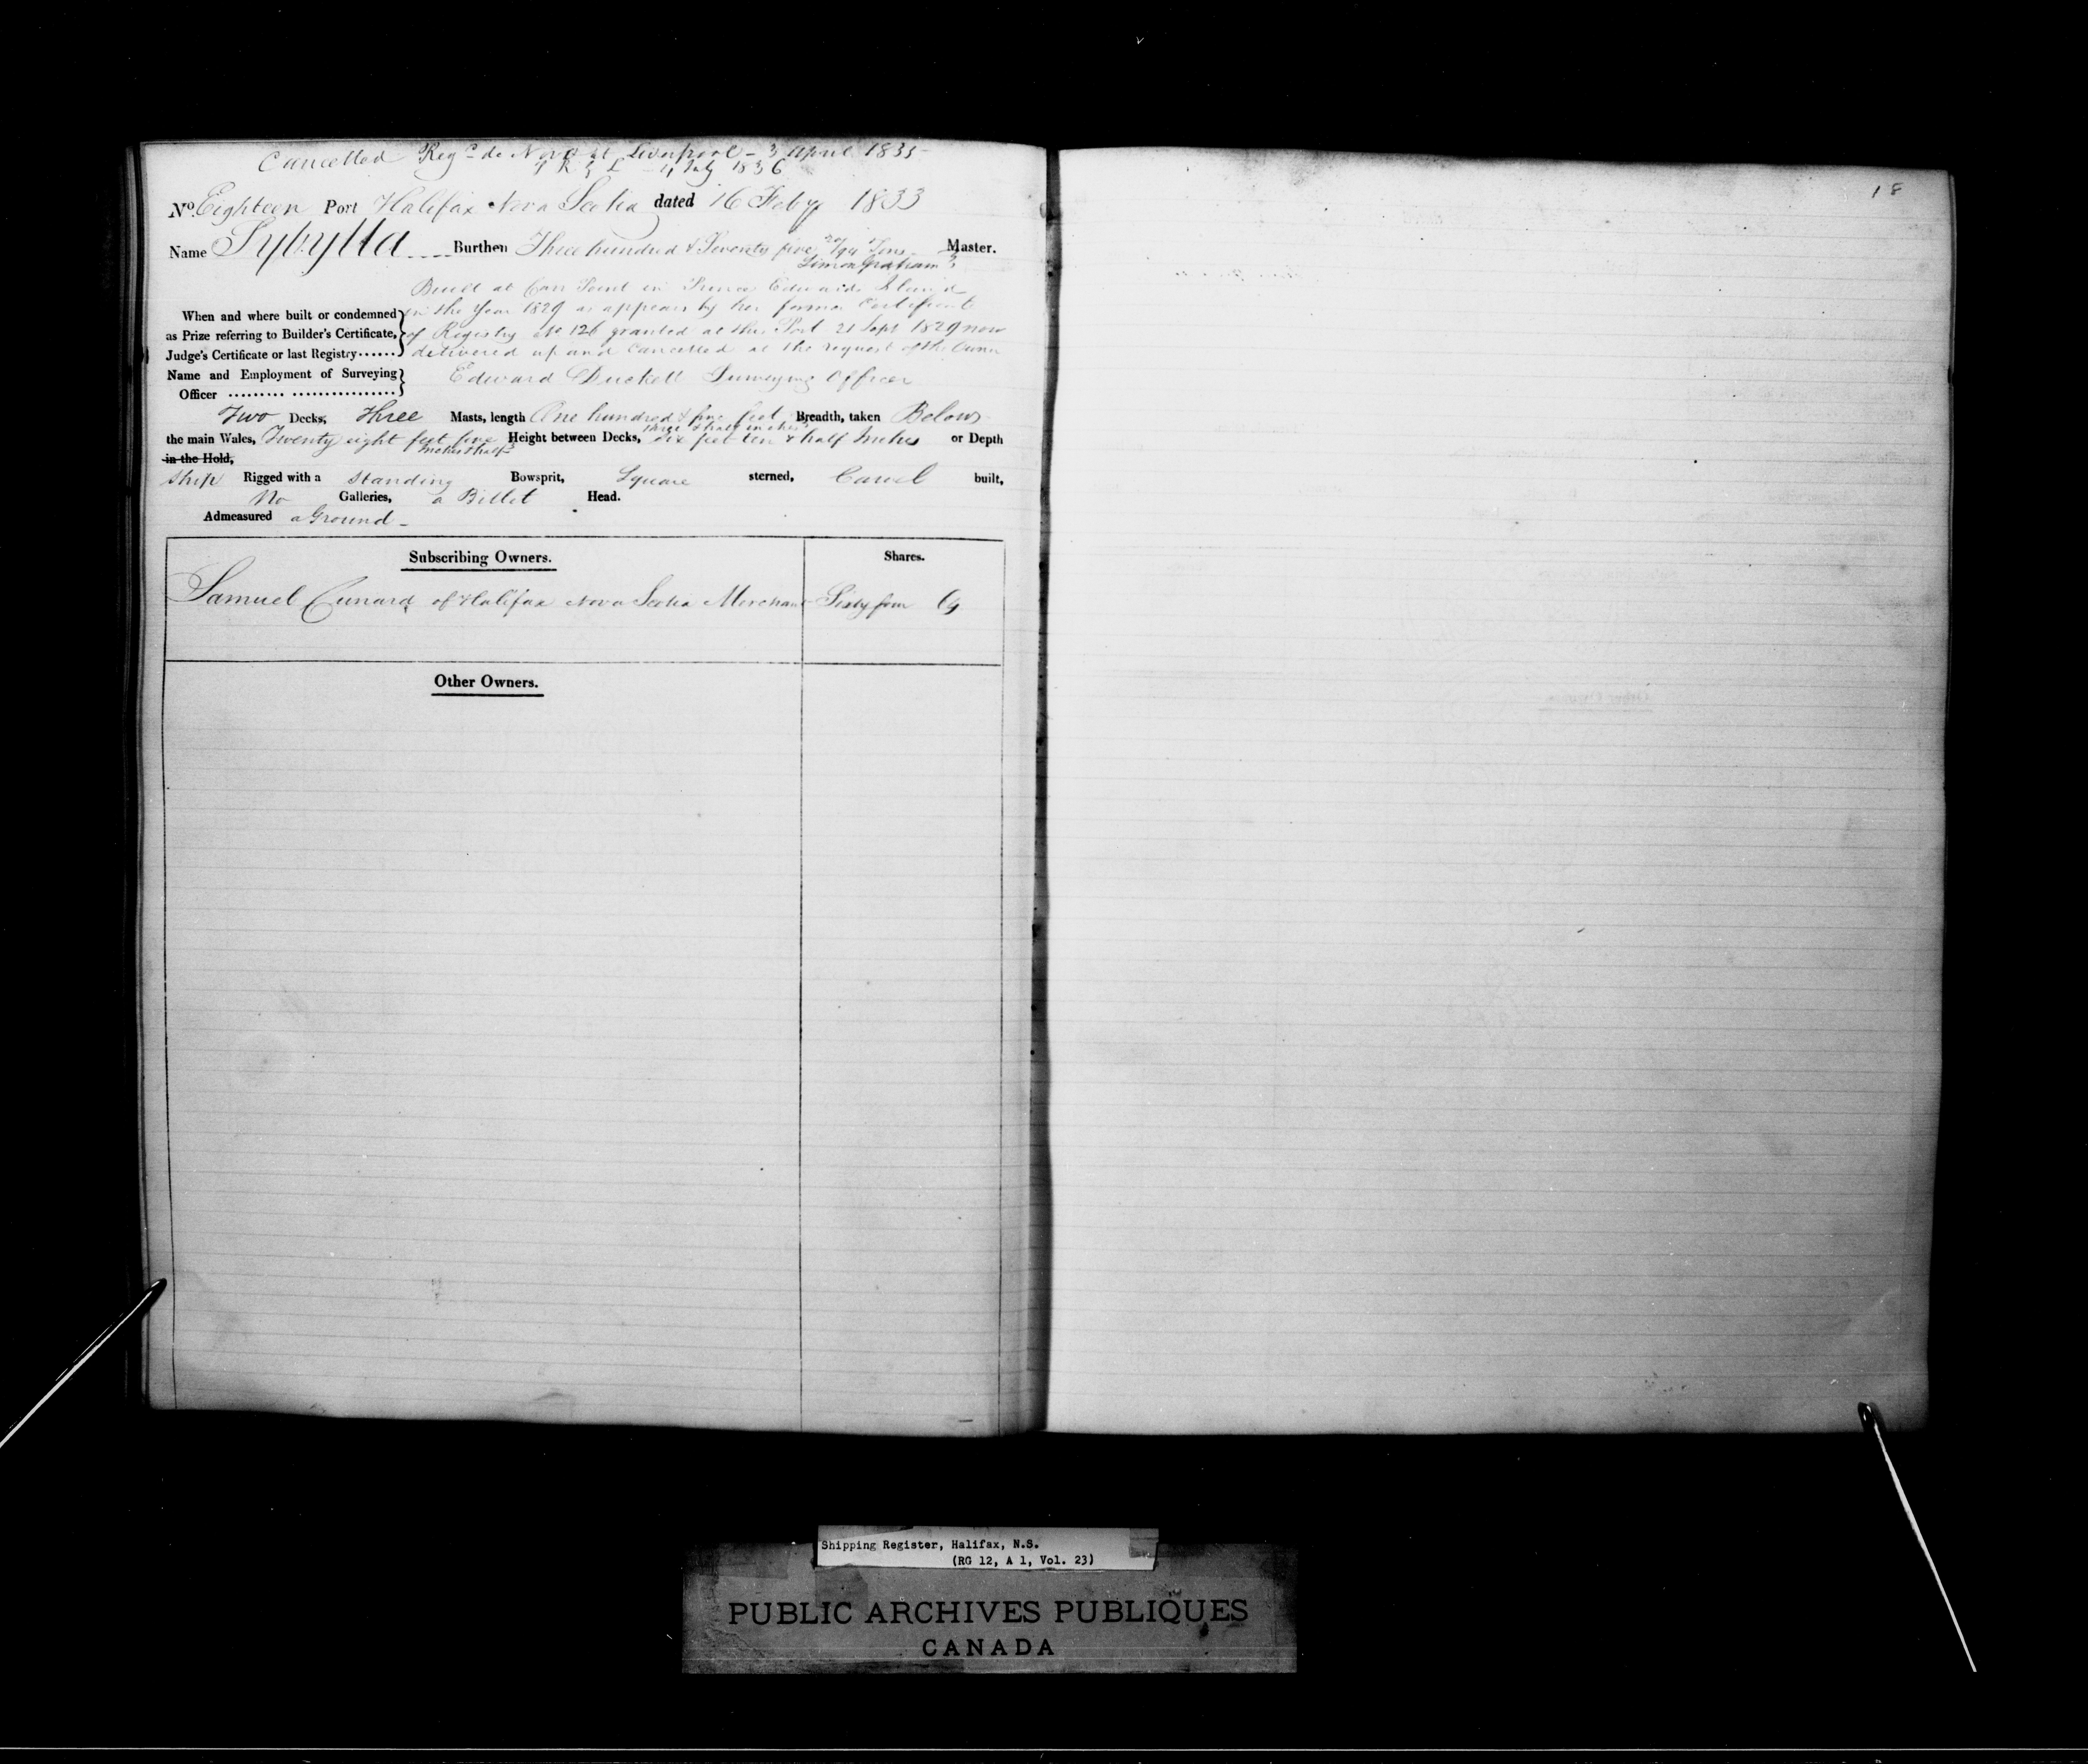 Cancelled Reg.d de Novo at Liverpool - 3 April 1835
4 July 1836
No. Eighteen Port Halifax Nova Scotia dated 16 Feby 1833
Name Sybylla Burthen Three hundred & Seventy five 20/94 Tons Master.
Simon Graham
Built at Point in Prince Edwards Island
in the Year 1829 as appears by her former Certificate
When and where built or condemned
as Prize referring to Builder's Certificate, of Registry No 126 granted at this Port 21 Sept 1829 now
Judge's Certificate or last Registry...... delivered up and Cancelled at the request of the Owner
Name and Employment of Surveying Edward Duckett Surveying Officer
Officer ......... ................
Two Decks, Three Masts, length One hundred & five feet Breadth, taken Below
three & half inches
the main Wales, Twenty eight feet five Height between Decks, six feet ten & half Inches or Depth
Inches & half
in the Hold,
Ship Rigged with a Standing Bowsprit, Square sterned, Carvel built,
No Galleries, a Billet Head.
Admeasured a Ground -
Subscribing Owners. Shares.
Samuel Cunard of Halifax Nova Scotia Merchant Sixty four 64
Other Owners.
18
Shipping Register, Halifax, N.S.
(RG 12, A 1, Vol. 23)
PUBLIC ARCHIVES PUBLIQUES
CANADA